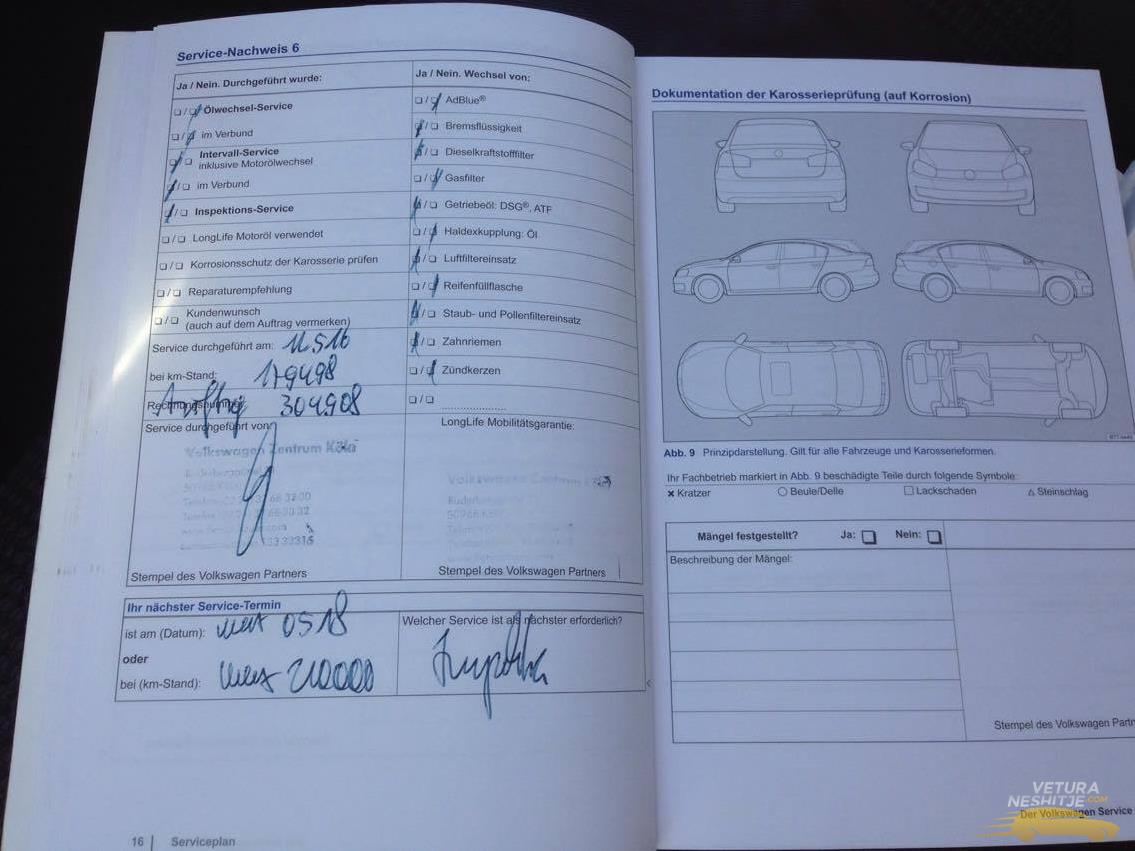 Service-Nachweis 6
Ja / Nein. Durchgeführt wurde:
Ölwechsel-Service
im Verbund
Intervall-Service
inklusive Motorölwechsel
im Verbund
Inspektions-Service
LongLife Motoröl verwendet
Korrosionsschutz der Karosserie prüfen
Reparaturempfehlung
Kundenwunsch
(auch auf dem Auftrag vermerken)
Service durchgeführt am: 11.5.16
bei km-Stand: 179498
Rechnungsnummer: Auftrag 304908
Service durchgeführt von:
Volkswagen Zentrum Köln
Stempel des Volkswagen Partners
Ja / Nein. Wechsel von:
AdBlue®
Bremsflüssigkeit
Dieselkraftstofffilter
Gasfilter
Getriebeöl: DSG®, ATF
Haldexkupplung: Öl
Luftfiltereinsatz
Reifenfüllflasche
Staub- und Pollenfiltereinsatz
Zahnriemen
Zündkerzen
LongLife Mobilitätsgarantie:
Volkswagen Zentrum
Stempel des Volkswagen Partners
Ihr nächster Service-Termin
ist am (Datum): max 05 18
oder
bei (km-Stand): max 210000
Welcher Service ist als nächster erforderlich?
16 | Serviceplan
Dokumentation der Karosserieprüfung (auf Korrosion)
Abb. 9 Prinzipdarstellung. Gilt für alle Fahrzeuge und Karosserieformen.
Ihr Fachbetrieb markiert in Abb. 9 beschädigte Teile durch folgende Symbole:
Kratzer
Beule/Delle
Lackschaden
Steinschlag
Mängel festgestellt? Ja: Nein:
Beschreibung der Mängel:
Stempel des Volkswagen Partn
Der Volkswagen Service
VETURA
NESHITJE.COM